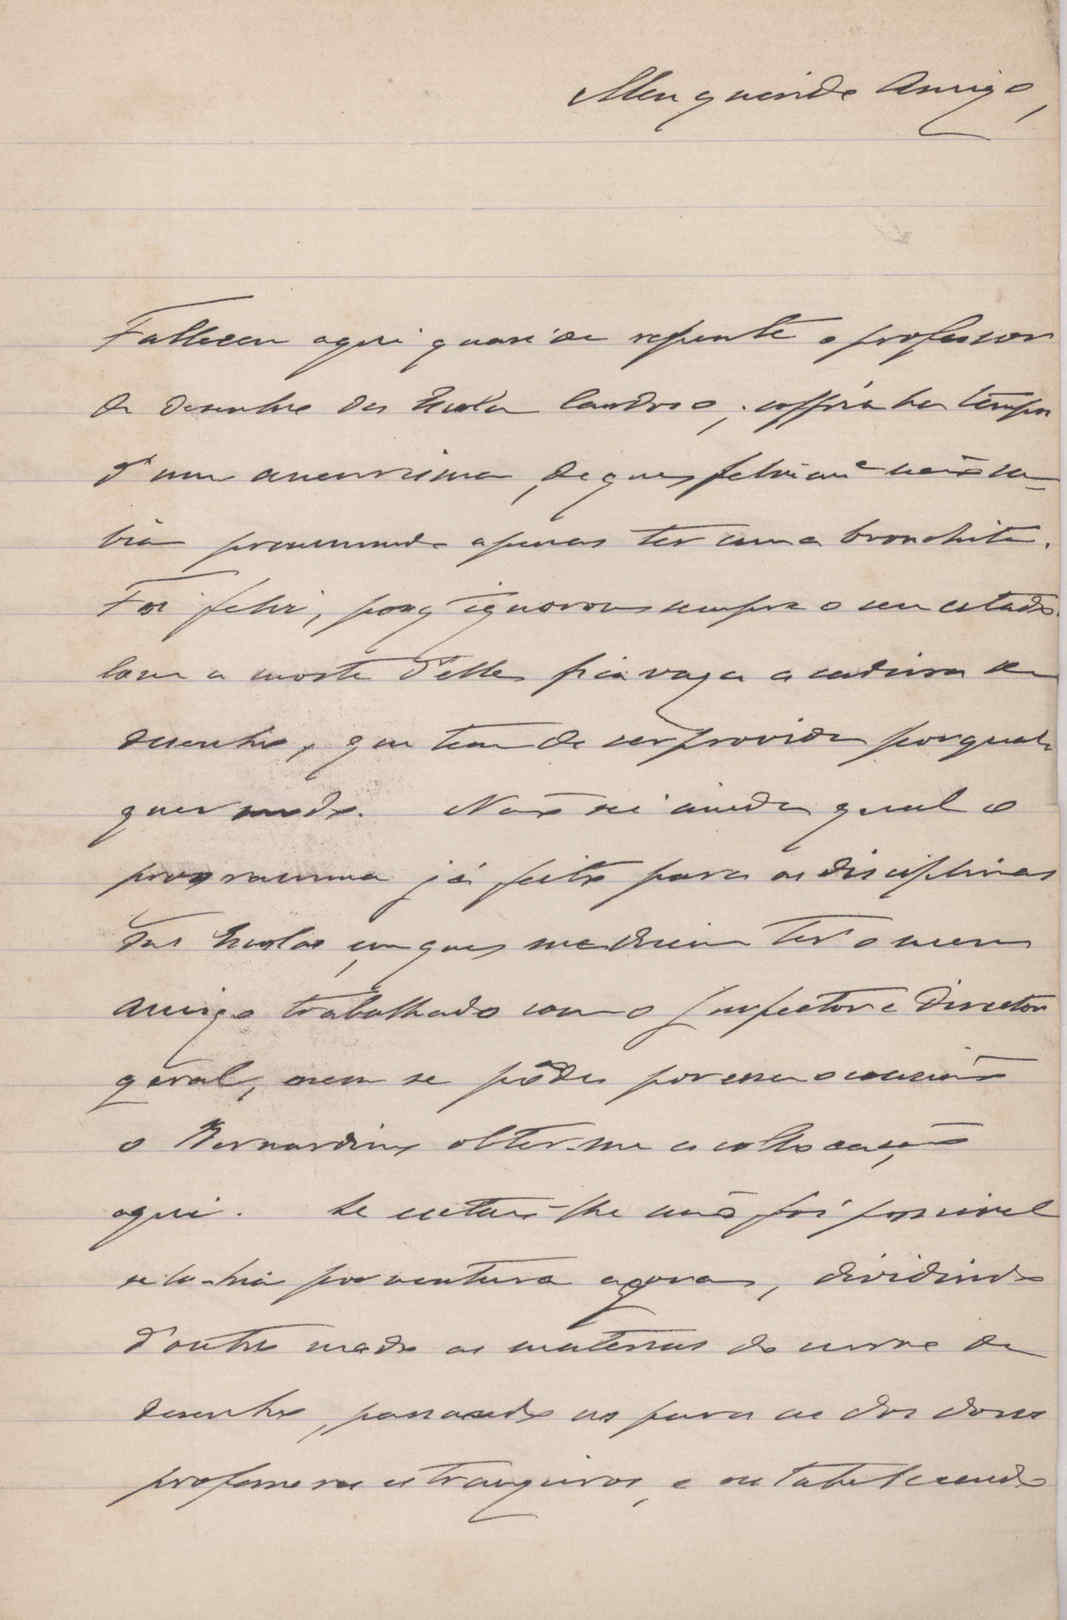 Meu querido Amigo,
Falleceu aqui quasi de repente o professor
de desenho da Escola Cardoso; soffria ha tempo
d'um aneurisma, de que felizmte não sa-
bia presumindo apenas ter uma bronchite.
Foi feliz, porq ignorou sempre o seu estado.
Com a morte d'elle fica vaga a cadeira de
desenho, que tem de ser provida por qual-
quer modo. Não sei ainda qual o
programma já feito para as disciplinas
das Escolas, em que me dizem ter o meu
amigo trabalhado com o Inspector e Director
geral, nem se pôde por essa occasião
o Bernardino obter-me a collocação
aqui. Se então lhe não foi possivel
sel-o-hia porventura agora, dividindo
d'outro modo as materias do curso de
desenho, passando as para as dos dois
professores estrangeiros, e estabelecendo